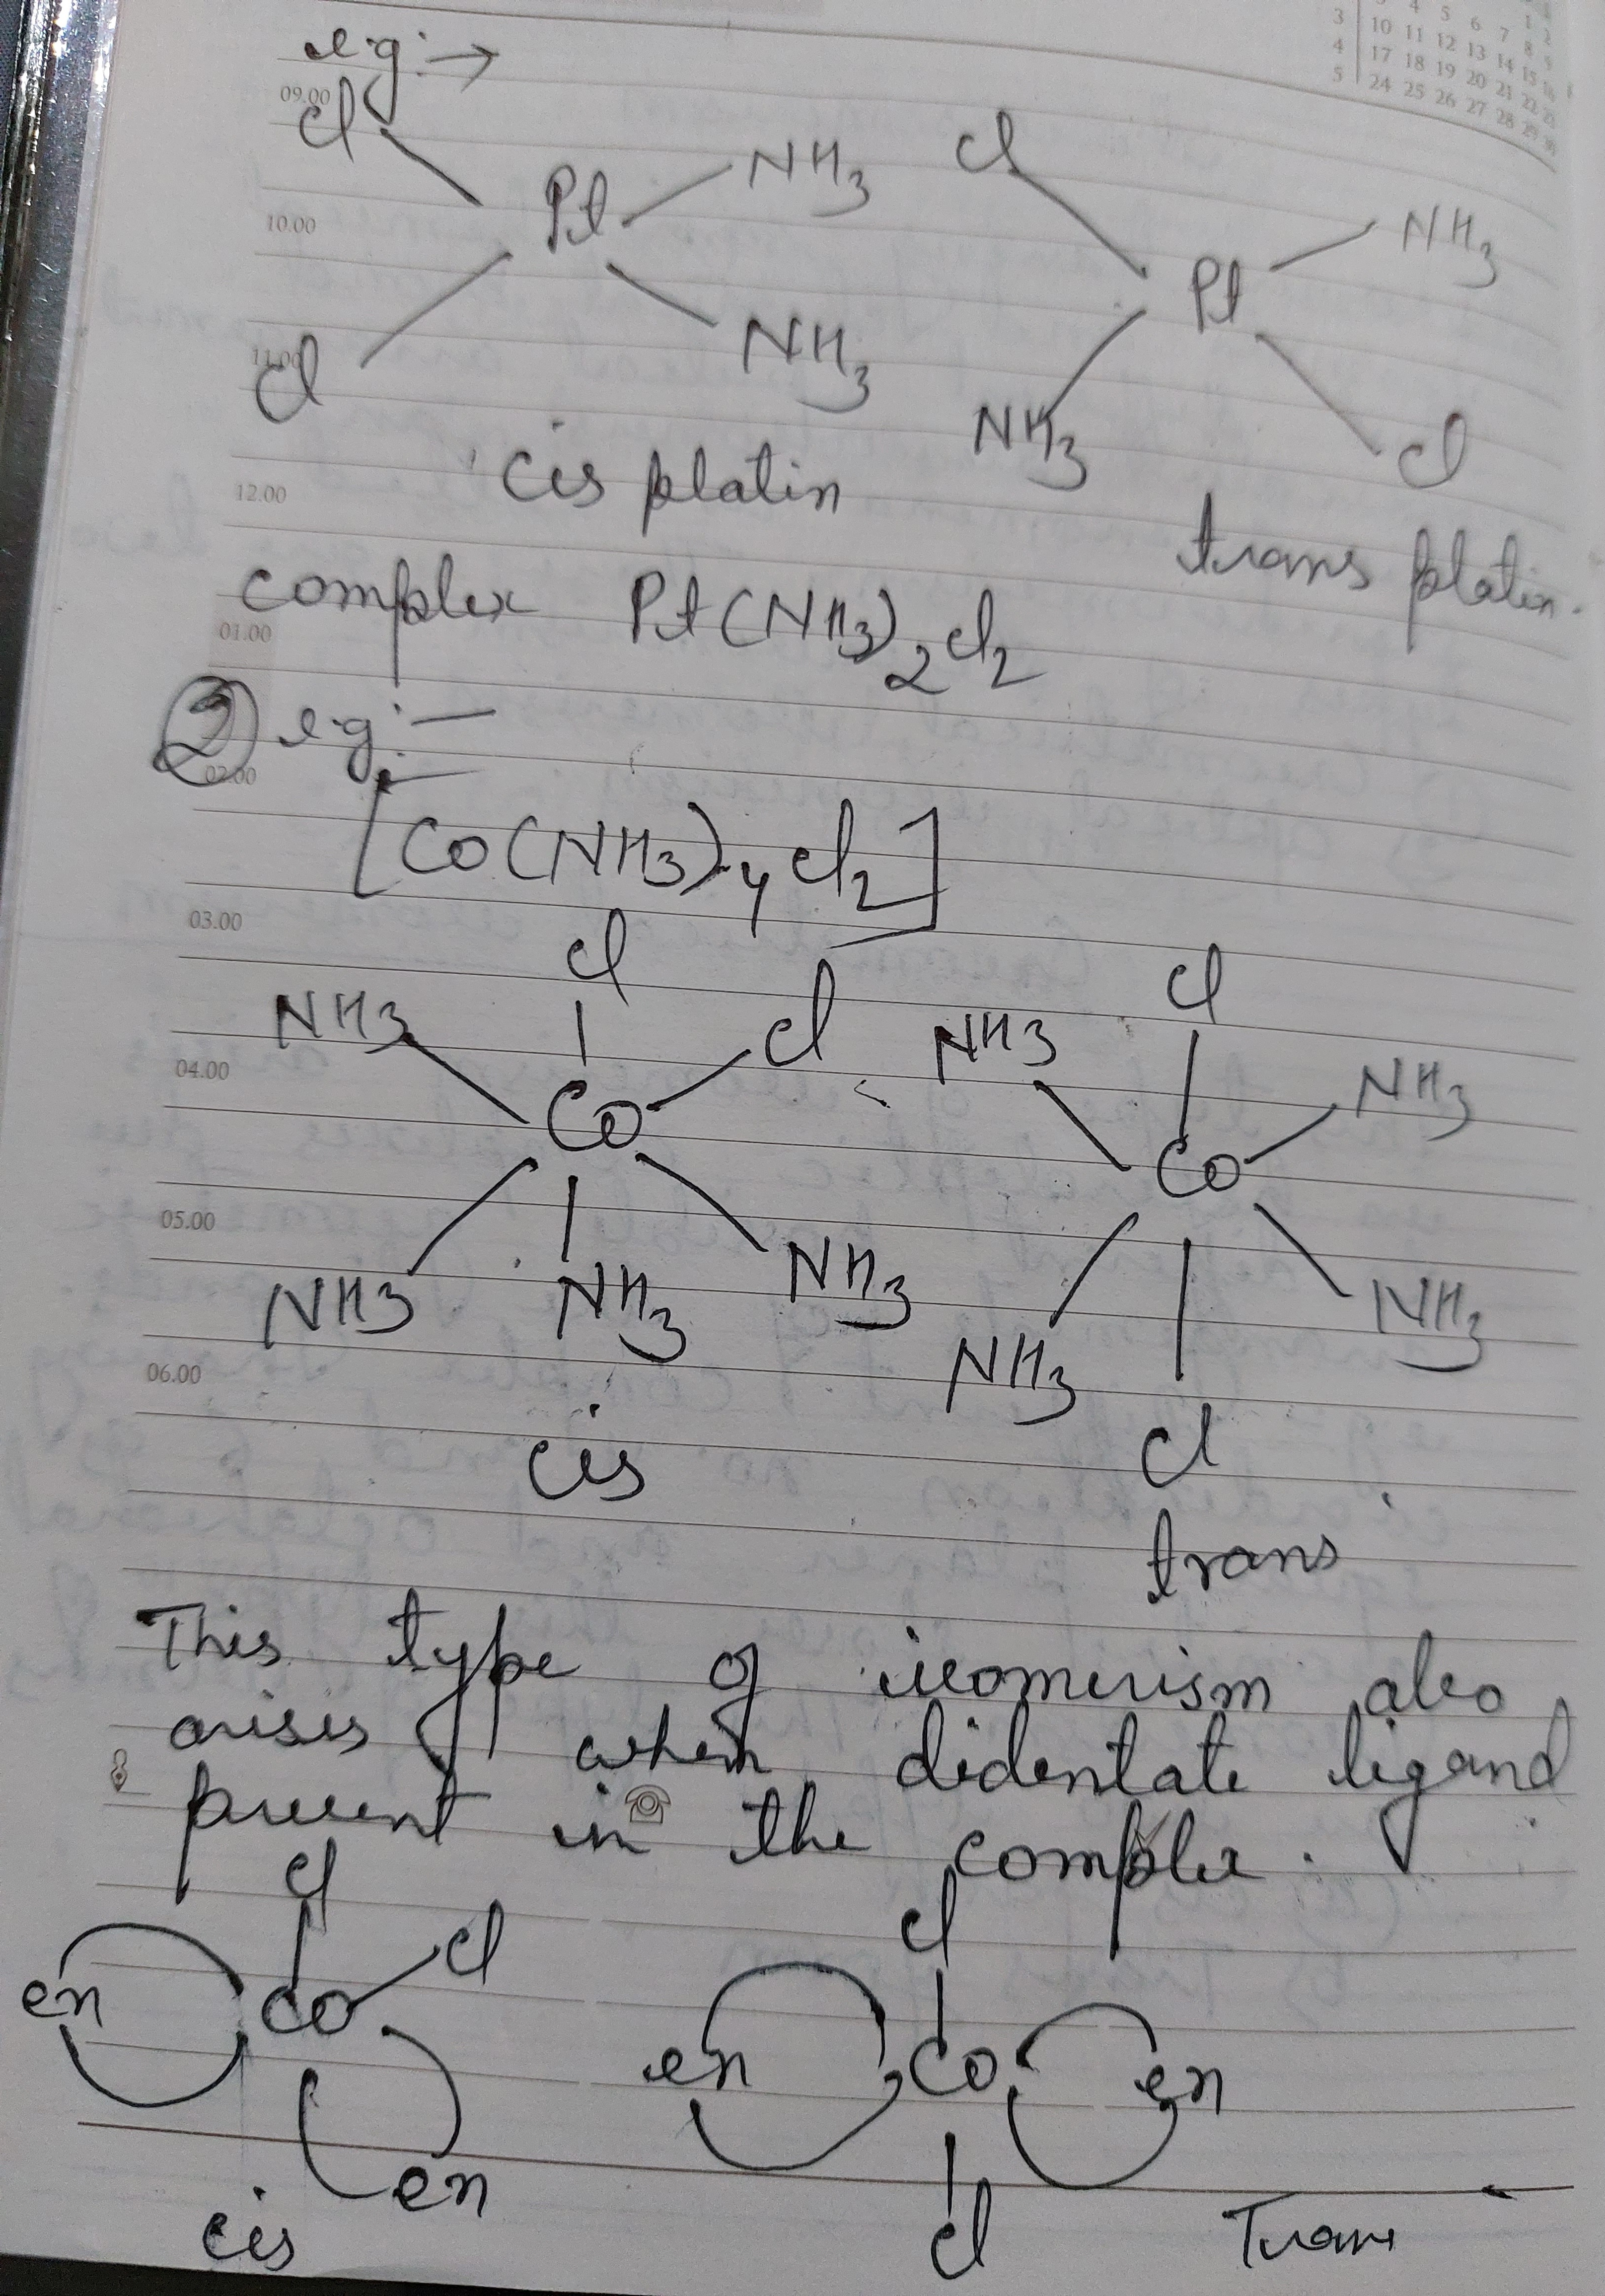 3 4 5 6 7 8 9
3 10 11 12 13 14 15 16
4 17 18 19 20 21 22 23
5 24 25 26 27 28 29 30
e.g:→
09.00
Cl NH3 Cl
Pt NH3
10.00
Pt
Cl NH3
11.00
NH3 Cl
cis platin
12.00
trans platin.
complex Pt(NH3)2Cl2
01.00
2 e.g:—
02.00
[Co(NH3)4Cl2]
03.00
Cl Cl
NH3 Cl NH3 NH3
04.00
Co Co
05.00
NH3 NH3 NH3 NH3 NH3
06.00
Cl
cis
trans
This type of isomerism also
arises when didentate ligand
present in the complex.
Cl Cl
Cl
en Co en Co en
en Cl
cis Trans